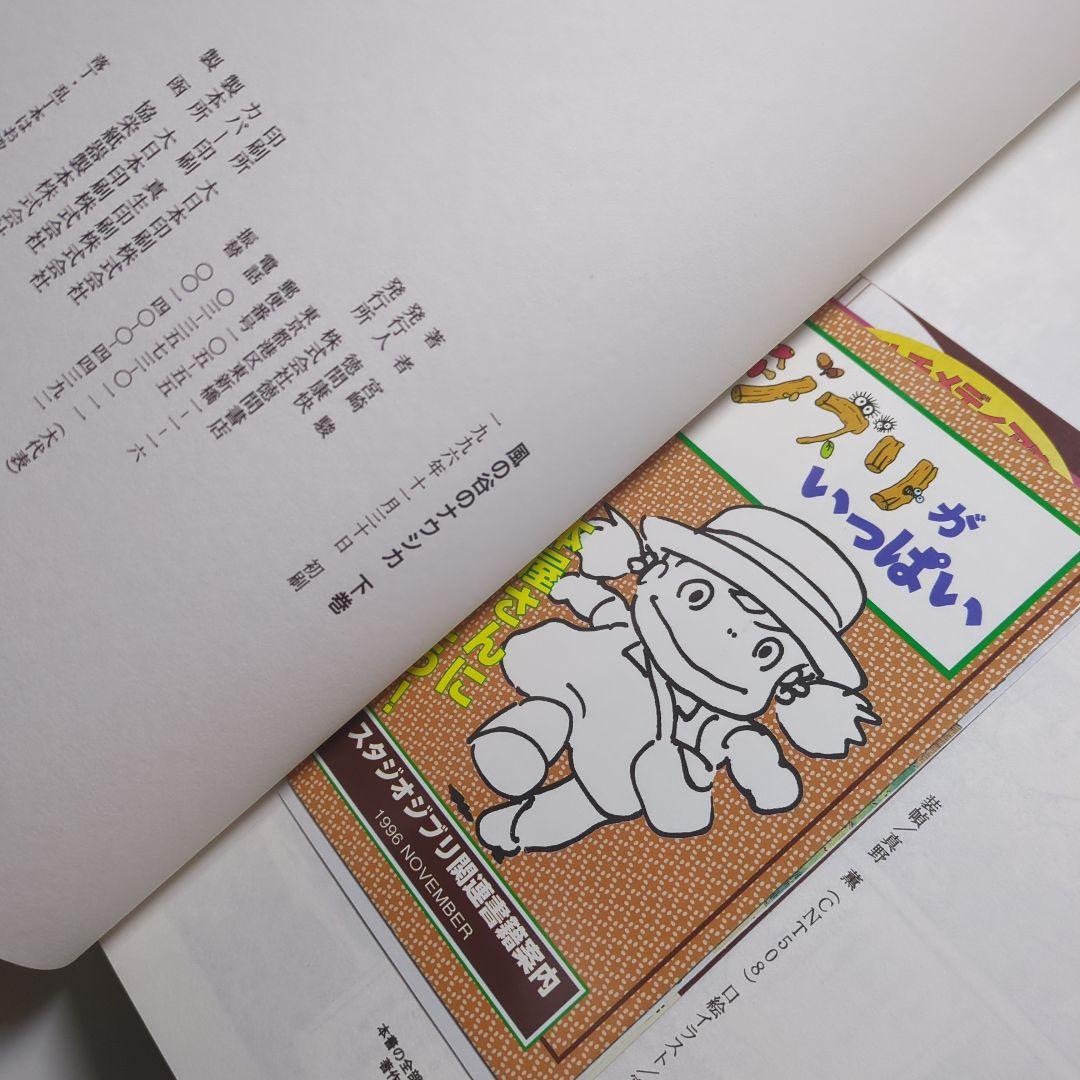 風の谷のナウシカ 下巻
一九九六年十一月三十日 初刷
著者 宮崎 駿
発行人 徳間康快
発行所 株式会社徳間書店
東京都港区東新橋一-一-一六
郵便番号 一〇五-五五
電話 〇三-三五七三-〇一一一(大代表)
振替 〇〇一四〇-〇-四四三九二
印刷所 大日本印刷株式会社
カバー印刷 真生印刷株式会社
製本所 大日本印刷株式会社
製函 協栄紙器製本株式会社
落丁・乱丁本はお
ジブリが
いっぱい
さんに
う!
スタジオジブリ関連書籍案内
1996 NOVEMBER
アニメディア
装幀/真野 薫(CNT508) 口絵イラスト/
本書の全部
著作